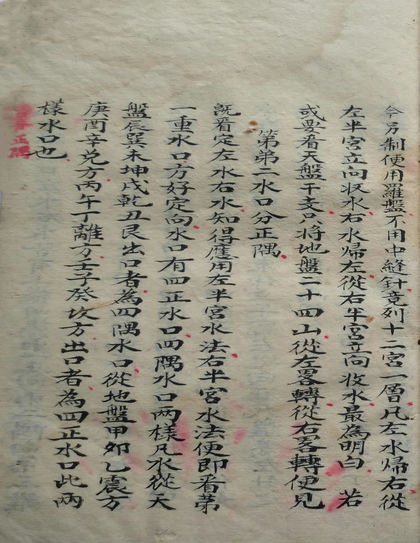 今另制使用羅盤不用中縫針竟列十二宮一層凡左水歸右從
左半宮立向收水右水歸左從右半宮立向收水最為明白若
或要看天盤干支只將地盤二十四山從左畧轉從右畧轉便見
第弟二水口分正隅
既看定左水右水知得應用左半宮水法右半宮水法便即看第
一重水口方好定向水口有四正水口四隅水口两樣凡水從天
盤辰巽未坤戌乾丑艮出口者為四隅水口從地盤甲卯乙震方
庚酉辛兑方丙午丁離方壬子癸坎方出口者為四正水口此兩
樣水口也
正隅